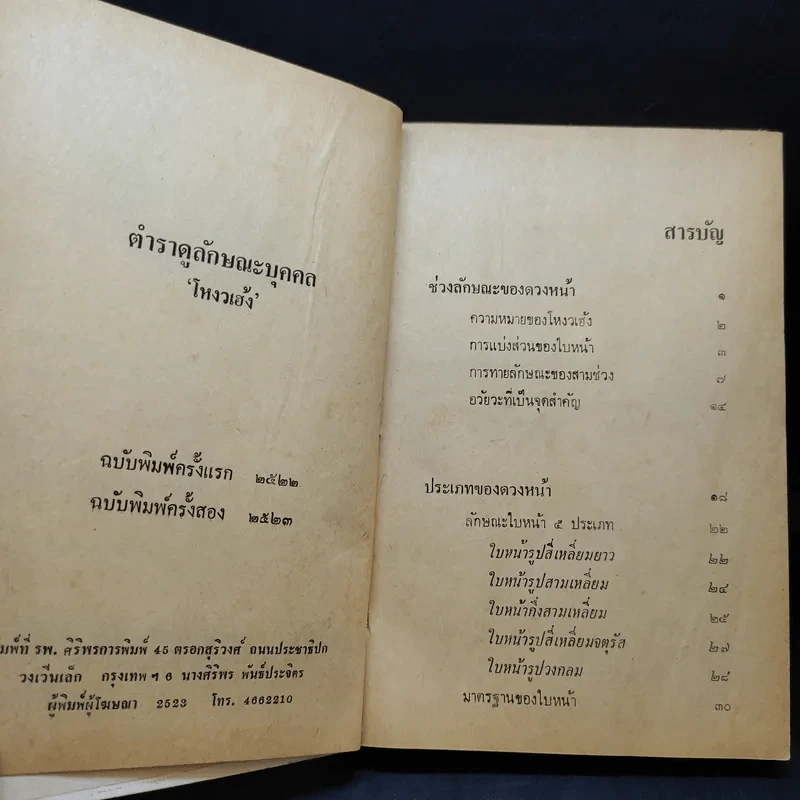 ตำราดูลักษณะบุคคล
'โหงวเฮ้ง'
ฉบับพิมพ์ครั้งแรก ๒๕๒๒
ฉบับพิมพ์ครั้งสอง ๒๕๒๓
มพ์ที่ รพ. ศิริพรการพิมพ์ 45 ตรอกสุริวงศ์ ถนนประชาธิปก
วงเวียนเล็ก กรุงเทพฯ 6 นางศิริพร พันธ์ประจิตร
ผู้พิมพ์ผู้โฆษณา 2523 โทร. 4662210
สารบัญ
ช่วงลักษณะของดวงหน้า ๑
ความหมายของโหงวเฮ้ง ๒
การแบ่งส่วนของใบหน้า ๓
การทายลักษณะของสามช่วง ๗
อวัยวะที่เป็นจุดสำคัญ ๑๔
ประเภทของดวงหน้า ๑๘
ลักษณะใบหน้า ๕ ประเภท ๒๒
ใบหน้ารูปสี่เหลี่ยมยาว ๒๒
ใบหน้ารูปสามเหลี่ยม ๒๔
ใบหน้ากึ่งสามเหลี่ยม ๒๕
ใบหน้ารูปสี่เหลี่ยมจตุรัส ๒๗
ใบหน้ารูปวงกลม ๒๘
มาตรฐานของใบหน้า ๓๐